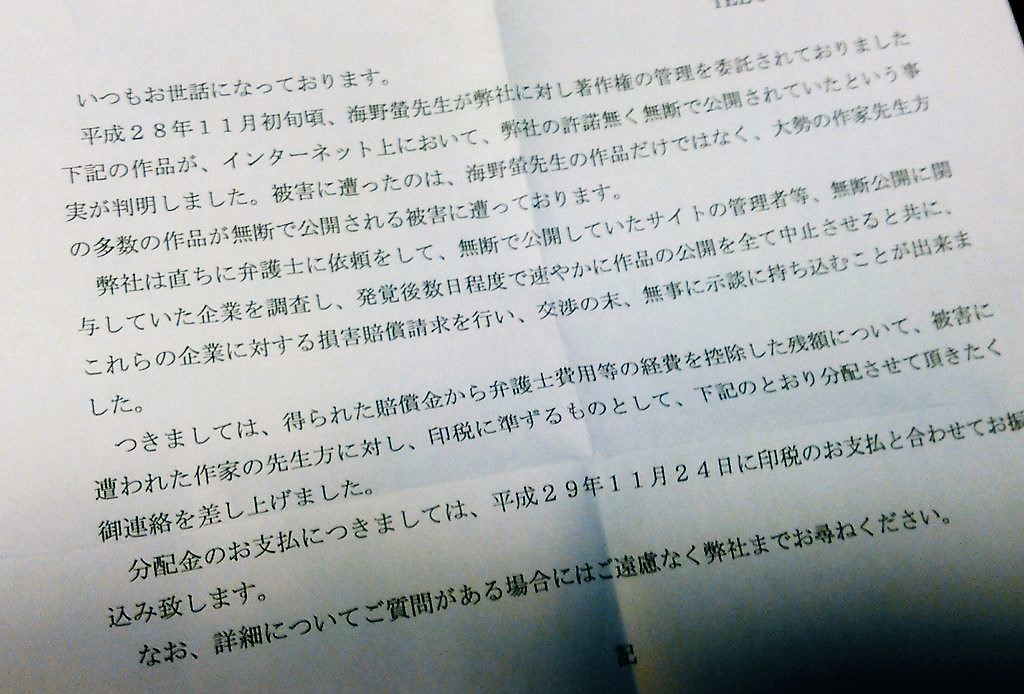 いつもお世話になっております。
平成２８年１１月初旬頃、海野螢先生が弊社に対し著作権の管理を委託されておりました
下記の作品が、インターネット上において、弊社の許諾無く無断で公開されていたという事
実が判明しました。被害に遭ったのは、海野螢先生の作品だけではなく、大勢の作家先生方
の多数の作品が無断で公開される被害に遭っております。
弊社は直ちに弁護士に依頼をして、無断で公開していたサイトの管理者等、無断公開に関
与していた企業を調査し、発覚後数日程度で速やかに作品の公開を全て中止させると共に、
これらの企業に対する損害賠償請求を行い、交渉の末、無事に示談に持ち込むことが出来ま
した。
つきましては、得られた賠償金から弁護士費用等の経費を控除した残額について、被害に
遭われた作家の先生方に対し、印税に準ずるものとして、下記のとおり分配させて頂きたく
御連絡を差し上げました。
分配金のお支払につきましては、平成２９年１１月２４日に印税のお支払と合わせてお振
込み致します。
なお、詳細についてご質問がある場合にはご遠慮なく弊社までお尋ねください。
記